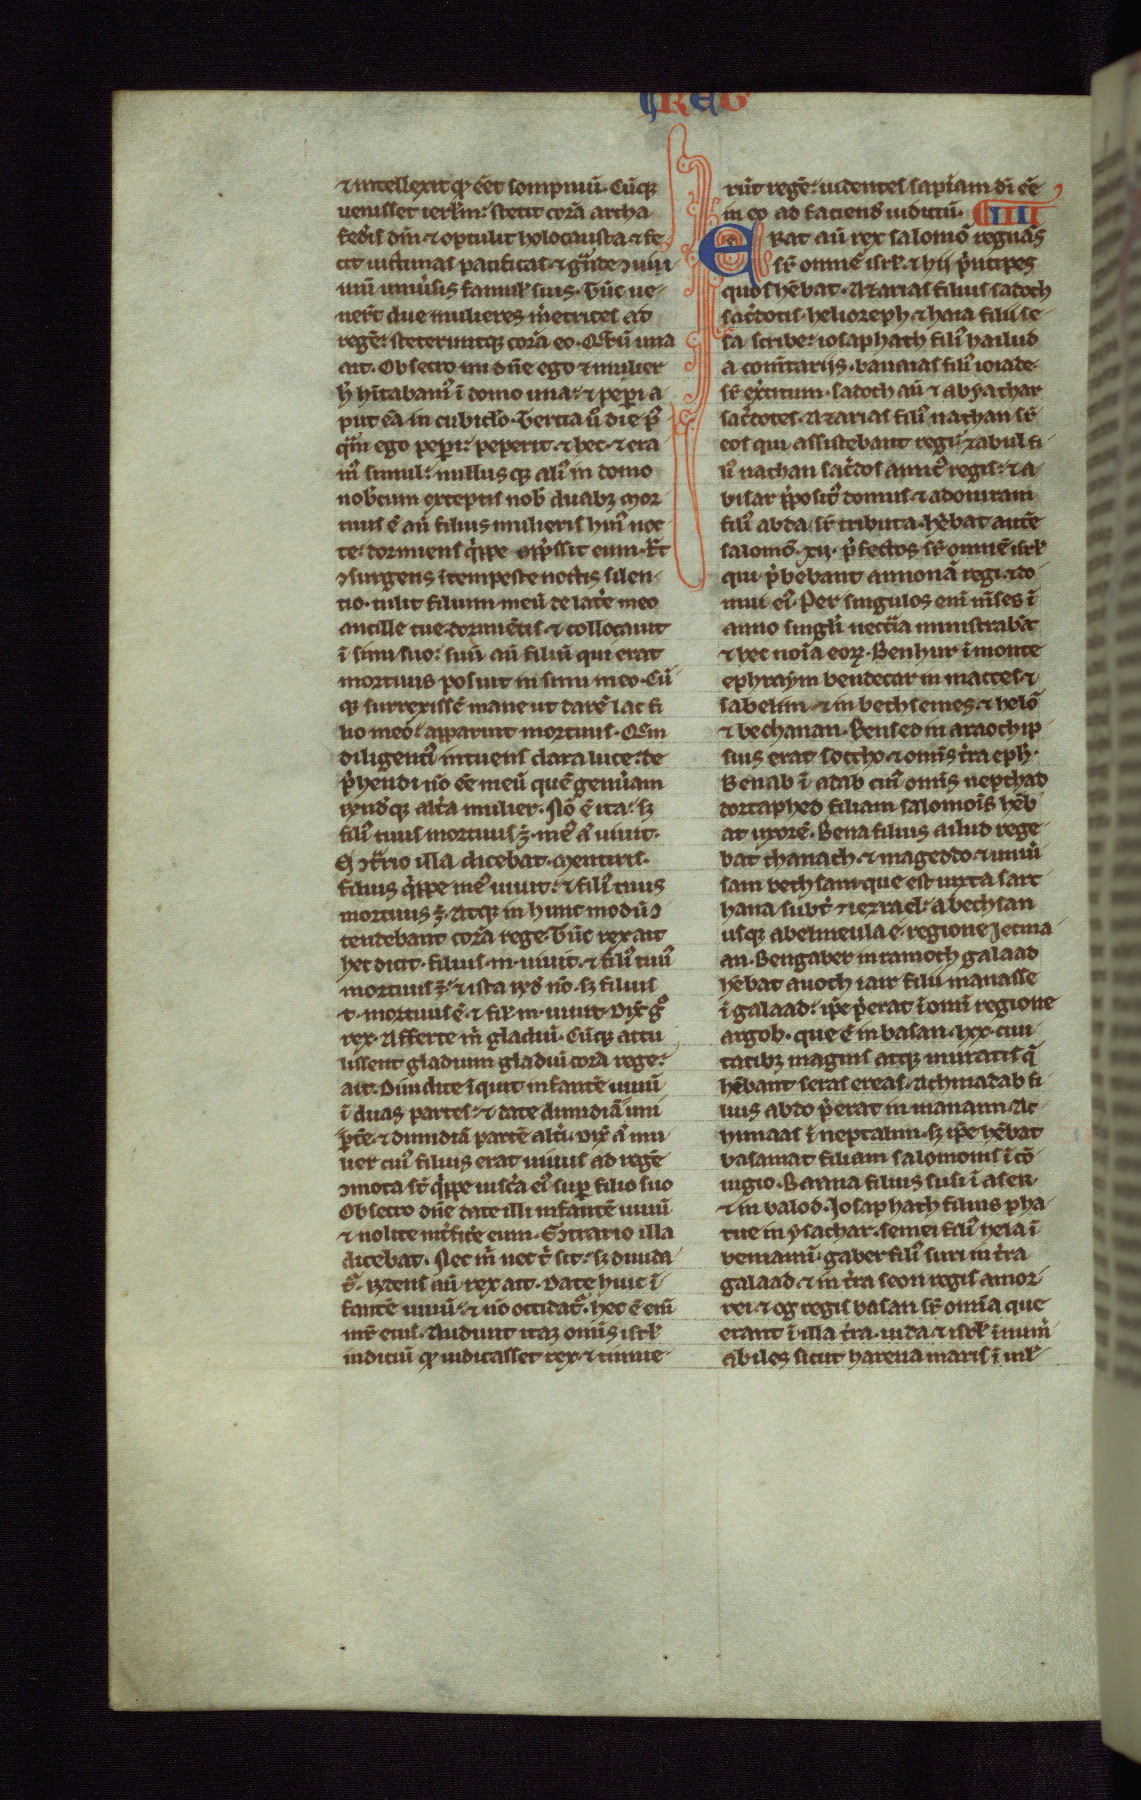 REG
⁊ intellexit qꝫ eēt sompniū. Cūqꝫ
uenisset ierl̄m: stetit corā archa
fed̄is dn̄i ⁊ optulit holocausta ⁊ fe
cit uictimas pacificas. ⁊ gͣnde ↄuiui
uiū uniu̾sis famul̾ suis. Tūc ue
ner̄t due mulieres m̾etrices ad
regē: steteruntqꝫ corā eo. Quaꝝ una
ait. Obsecro mi dn̄e ego ⁊ mulier
h̾ hītabam᾽ ī domo una: ⁊ peperi a
put eā in cubic̾lo. Tercia u̾o die p᾽
qͣm ego peperi: peperit. ⁊ hec. ⁊ era
m᾽ simul: nullusqꝫ ali᾽ in domo
nob̾cum exceptis nob̾ duabꝫ. Mor
tuus ē aū filius mulieris hui᾽ noc
te: dormiens qͥppe opp̾ssit eum. Et
ↄsurgens ītempeste noctis silen-
tio. tulit filium meū de lat̾e meo
ancille tue dormiētis. ⁊ collocauit
ī sinu suo: suū aū filiū qui erat
mortuus posuit in sinu meo. Cū
qꝫ surrexissē mane ut darē lac fi
lio meo: apparuit mortuus. Quē
diligenti᾽ intuens clara luce: de
p̾hendi nō eē meū quē genu̾am
rn̄ditqꝫ alt̾a mulier. Nō ē ita: sꝫ
fili᾽ tuus mortuus ē. me᾽ aū uiuit.
Eↄt̾rio illa dicebat. Mentiris.
filius qͥppe me᾽ uiuit: ⁊ fili᾽ tuus
mortuus ē. Atqꝫ in hunc modū ↄ
tendebant corā rege. Tūc rex ait
hec dicit. filius m̄. uiuit. ⁊ fili᾽ tuu᾽
mortuus ē: ⁊ ista rn̄d̾ nō. sꝫ filius
t. mortuus ē. ⁊ fil̾ m̄. uiuit. Dix̾ gͦ
rex. Afferte m̄ gladiū. Cūqꝫ attu
lissent gladium gladiū corā rege:
ait. Diuidite īquit infantē uiuū
ī duas partes: ⁊ date dimidiā uni
p̾tē. ⁊ dimidiā partē alt̾i. Dix̾ aū mu
lier cui᾽ filius erat uiuus ad regē
ↄmota st̄ qͥppe uisc̾a ei᾽ sup filio suo
Obsecro dn̄e date illi infantē uiuū
⁊ nolite int̾fic̾e eum. Eↄtrario illa
dicebat. Nec m̄ nec t̾ sit: sꝫ diuida
t᾽. Rn̄dens aū rex ait. Date huic ī
fantē uiuū: ⁊ nō occidat᾽. hec ē enī
mr̄ eius. Audiuit itaꝫ omīs isrl̾
iudiciū qꝫ iudicasset rex. ⁊ timue-
rūt regē: uidentes sapīam dī eē
in eo ad faciend̾ iudiciū. IIII
ERat aū rex salomō regnās
sr̄ omnē isrl̾. ⁊ hii p̾ncipes
quos hēbat. Azarias filius sadoch
sac̾dotis. helioreph ⁊ haia filii se-
sa scribe: iosaphath fili᾽ hailud
a com̄tariis. banaias fili᾽ ioiade.
sr̄ ex̾citum. sadoch aū ⁊ abyathar
sac̾dotes. Azarias fili᾽ nathan sr̄
eos qui assistebant regi: zabul fi
li᾽ nathan sac̾dos amic᾽ regis: ⁊ a-
hisar p̾posit᾽ domus. ⁊ adoniram
fili᾽ abda. sr̄ tributa. hēbat autē
salomō. xii. p̾fectos sr̄ omnē isrl̾
qui p̾bebant annonā regi. ⁊ do-
mui ei᾽. Per singulos enī mēses ī
anno singl̾i necc̾ia ministrabāt
⁊ hec noīa eoꝝ. Benhur ī monte
ephraym bendecar in macces. ⁊
sabelim. ⁊ in bethsemes. ⁊ helō
⁊ bethanan. Benseo in araoth ip
sius erat soccho. ⁊ omīs t̾ra eph̾.
Benab ī adab cui᾽ omīs nepthad
dortaphed filiam salomōis hēb
at uxorē. Bena filius ailud rege
bat thanach. ⁊ mageddo. ⁊ uniū
sam bethsam. que est iuxta sart
hana subt̾. ⁊ iezrael: a bethsan
usqꝫ abelmeula e. regione Jecma
an. Bengaber in ramoth galaad
hēbat auoth iair filii manasse
ī galaad: ip̄e p̾erat ī omī regione
argob. que ē in basan. lxx. ciui
tatibꝫ magnis atqꝫ muratis q̄
hēbant seras ereas. Achinadab fi
lius abdo p̾erat in manaim. Ac
himaas ī neptalim. sꝫ ip̄e hēbat
basamat filiam salomonis ī cō
iugio. Baana filius susi ī aser.
⁊ in balod. Josaphath filius pha
rue in ysachar. semei fili᾽ hela ī
beniamī. gaber fili᾽ suri in t̾ra
galaad. ⁊ in t̾ra seon regis amor-
rei. ⁊ og regis basan sr̄ omīa que
erant ī illa t̾ra. iuda. ⁊ isrl̾ īnum̾
abiles sicut harena maris ī ml̾-